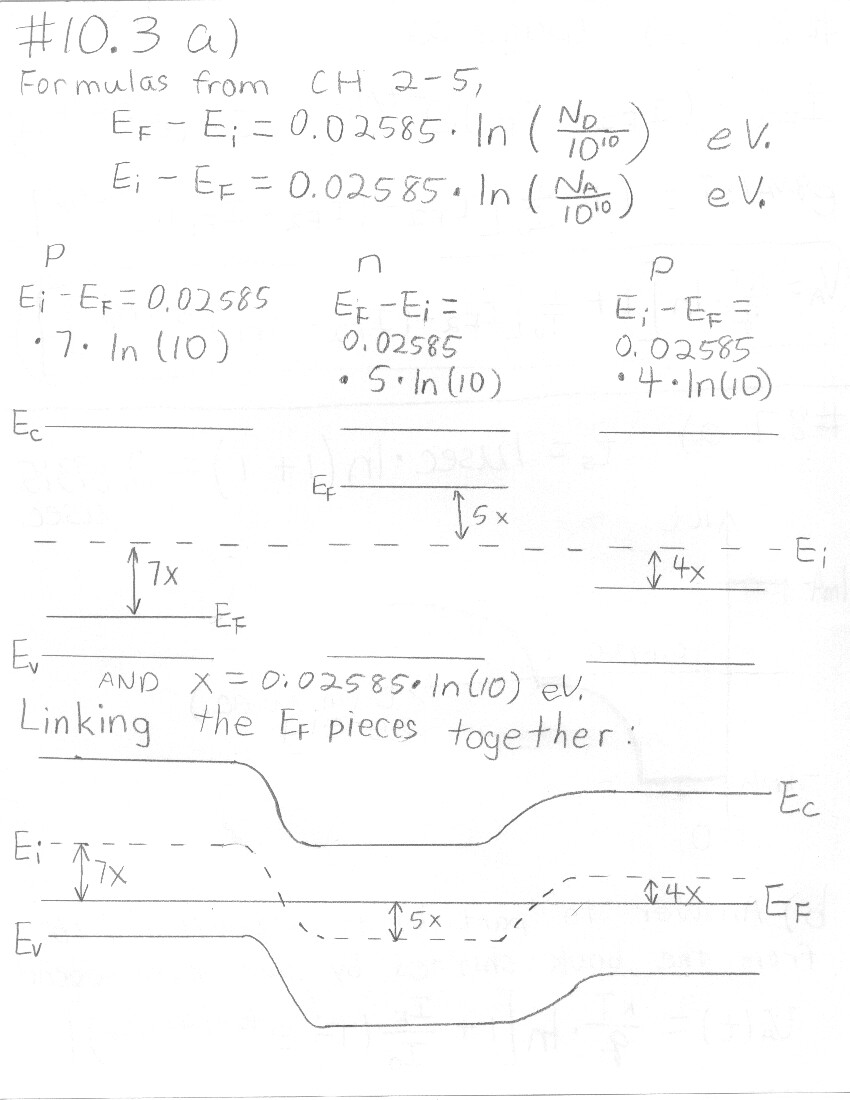 #10.3 a)
Formulas from CH 2-5,
E_F - E_i = 0.02585 · ln (N_D/10^10) eV.
E_i - E_F = 0.02585 · ln (N_A/10^10) eV.
p n p
E_i - E_F = 0.02585 E_F - E_i = E_i - E_F =
· 7 · ln (10) 0.02585 0.02585
· 5 · ln (10) · 4 · ln (10)
E_c
E_F 5x
E_i
7x 4x
E_F
E_v
AND x = 0.02585 · ln (10) eV.
Linking the E_F pieces together:
E_c
E_i
7x 4x
E_F
5x
E_v